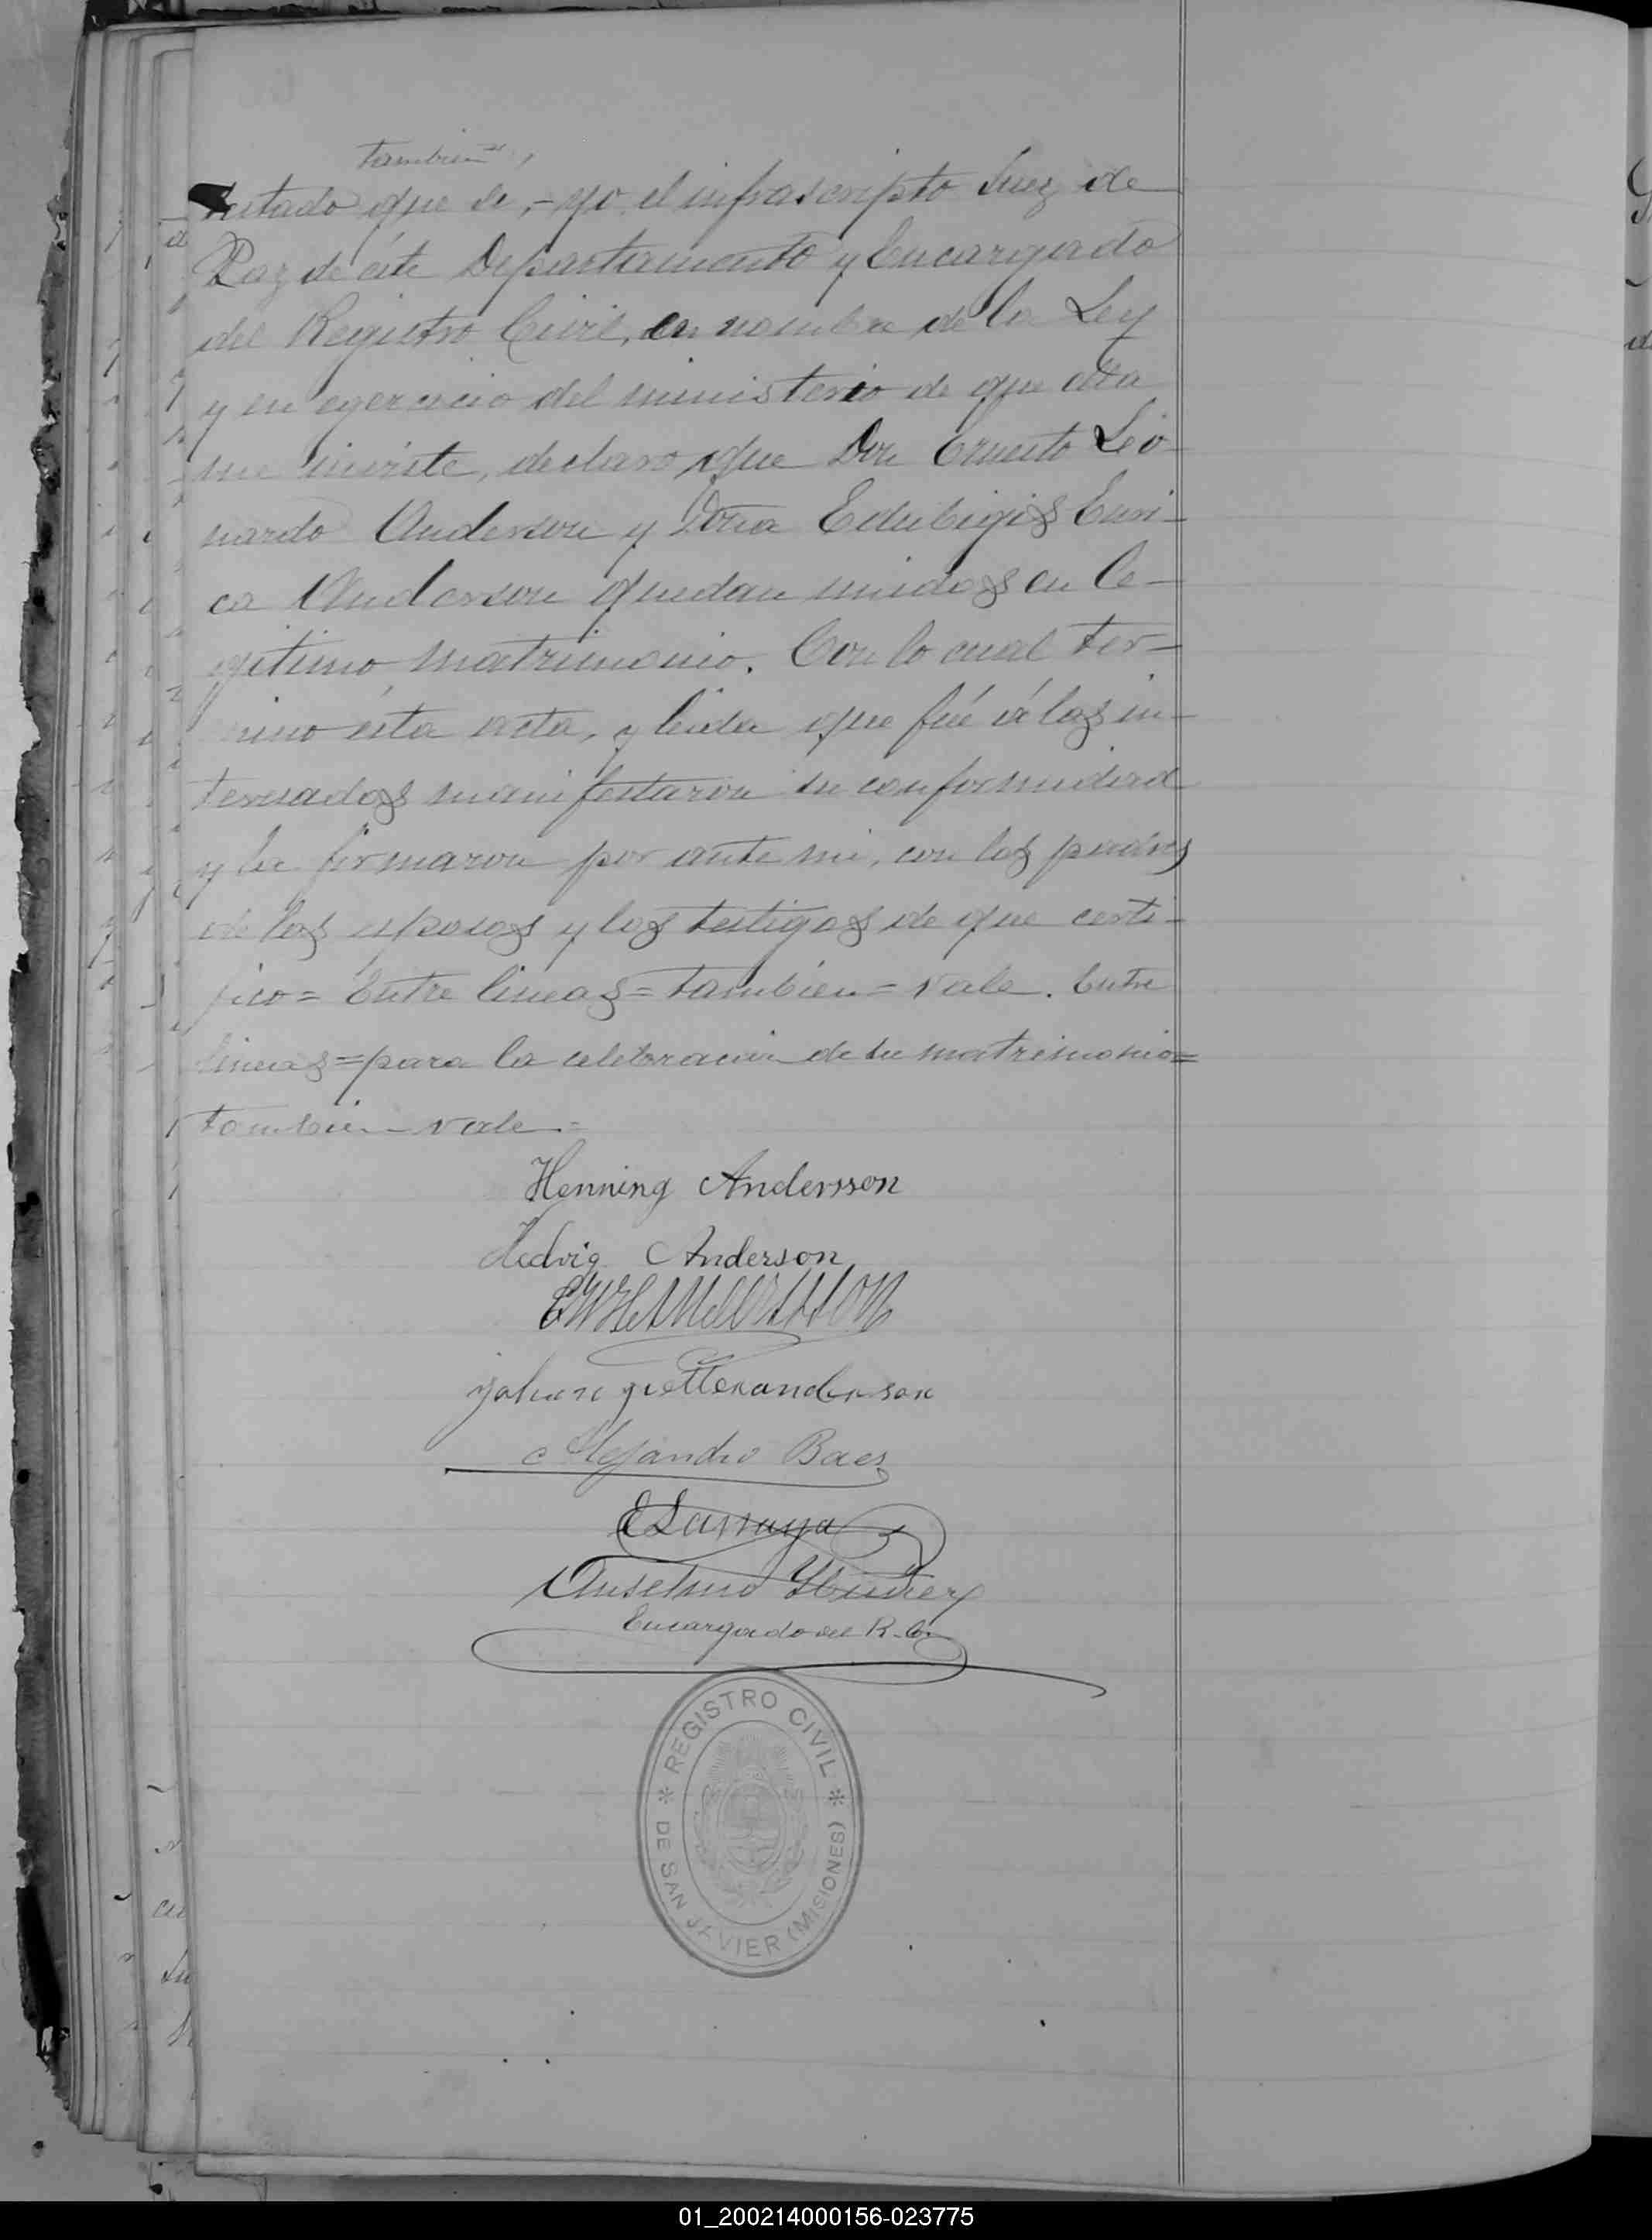 también
testado que si,- yo el infrascripto Juez de
Paz de éste Departamento y Encargado
del Registro Civil, en nombre de la Ley
y en egercicio del ministerio de que ella
me inviste, declaro que Don Ernesto Leo-
nardo Anderson y Doña Edubigis Enri-
ca Anderson quedan unidos en le-
gitimo matrimonio. Con lo cual ter-
minó ésta acta, y leida que fué á los in-
teresados manifestaron su conformidad
y la firmaron por ante mi, con los padres
de los esposos y los testigos de que certi-
fico = Entre lineas = también = vale. Entre
lineas = para la celebracion de su matrimonio =
tambien - vale =
Henning Andersson
Hedvig Anderson
Johan Anderson
Alejandro Baes
Anselmo
Encargado del R. C.
REGISTRO CIVIL
* DE SAN JAVIER (MISIONES) *
01_200214000156-023775